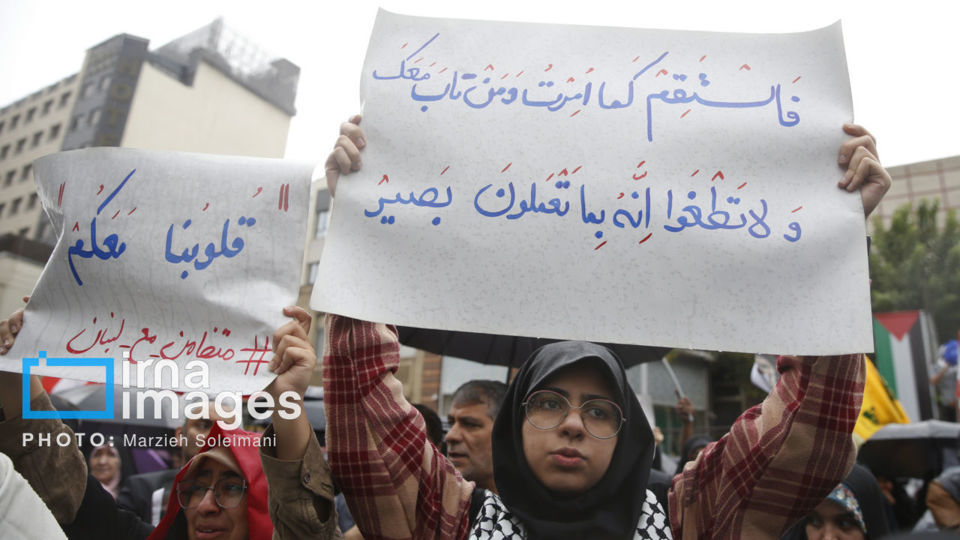 فَاسْتَقِمْ كَمَا أُمِرْتَ وَمَنْ تَابَ مَعَكَ
وَلَا تَطْغَوْا إِنَّهُ بِمَا تَعْمَلُونَ بَصِيرٌ
"قُلُوبُنَا مَعَكُمْ"
#متضامن_مع_لبنان
irna
images
PHOTO: Marzieh Soleimani